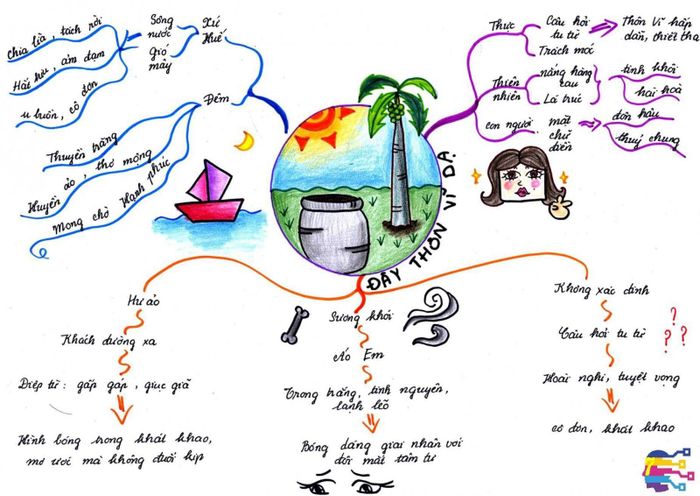 ĐÂY THÔN VĨ DẠ
Xứ Huế
Sông nước
Gió mây
Chia lìa, tách rời
Hắt hiu, ảm đạm
u buồn, cô đơn
Đêm
Thuyền trăng
Huyền ảo, thơ mộng
Mong chờ Hạnh phúc
Thực
Câu hỏi tu từ
Trách móc
Thôn Vĩ hấp dẫn, thiết tha
Thiên nhiên
nắng hàng cau
Lá trúc
tinh khôi
hài hoà
con người
mặt chữ điền
đôn hậu
thuỷ chung
Hư ảo
Khách đường xa
Điệp từ: gấp gáp, giục giã
Hình bóng trong khát khao,
mơ ước mà không đuổi kịp
Sương khói
Áo Em
Trong trắng, tinh nguyên,
lạnh lẽo
Bóng dáng giai nhân với
đôi mắt tâm tư
Không xác định
Câu hỏi tu từ
? ? ?
Hoài nghi, tuyệt vọng
cô đơn, khát khao